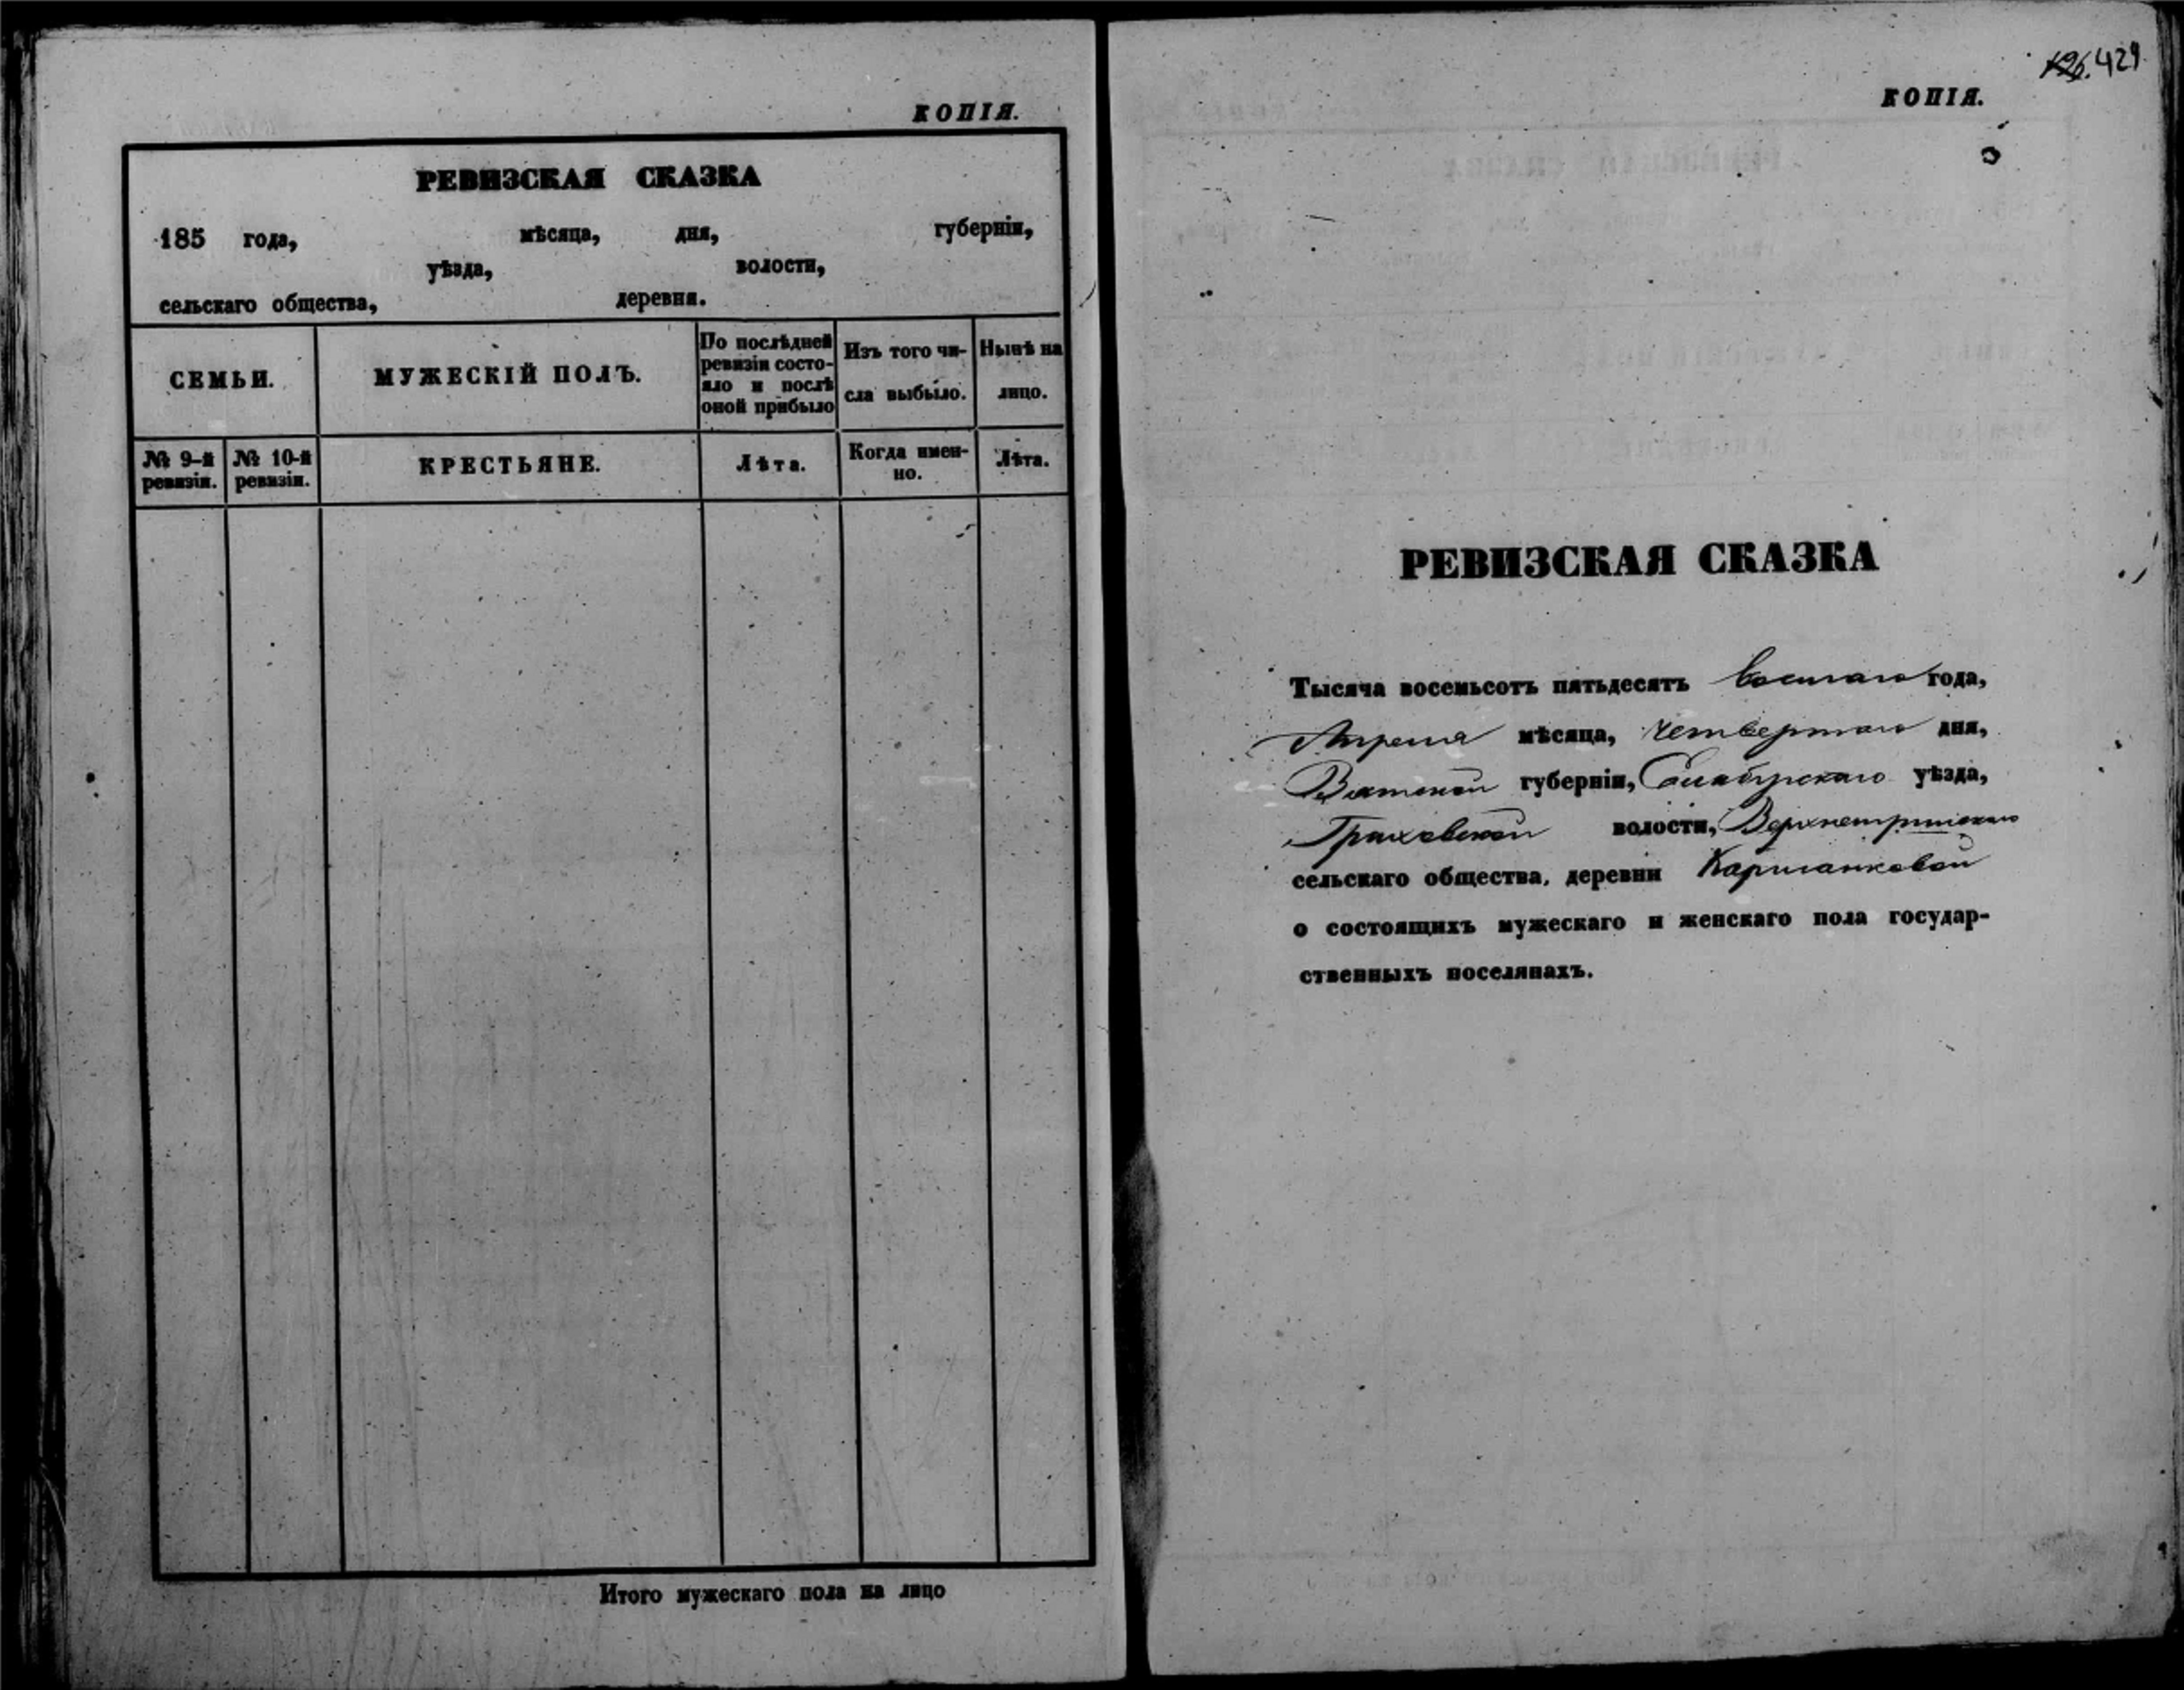 КОПІЯ.
РЕВИЗСКАЯ СКАЗКА
185 года, мѣсяца, дня, губерніи,
уѣзда, волости,
сельскаго общества, деревня.
СЕМЬИ.
МУЖЕСКІЙ ПОЛЪ.
По послѣдней
ревизіи состо-
яло и послѣ
оной прибыло
Изъ того чи-
сла выбыло.
Нынѣ на
лицо.
№ 9-й
ревизіи.
№ 10-й
ревизіи.
КРЕСТЬЯНЕ.
Лѣта.
Когда имен-
но.
Лѣта.
Итого мужескаго пола на лицо
429
КОПІЯ.
РЕВИЗСКАЯ СКАЗКА
Тысяча восемьсотъ пятьдесятъ восьмаго года,
Апреля мѣсяца, четвертаго дня,
Вятской губерніи, Елабужскаго уѣзда,
Граховской волости,
сельскаго общества, деревни
о состоящихъ мужескаго и женскаго пола государ-
ственныхъ поселянахъ.